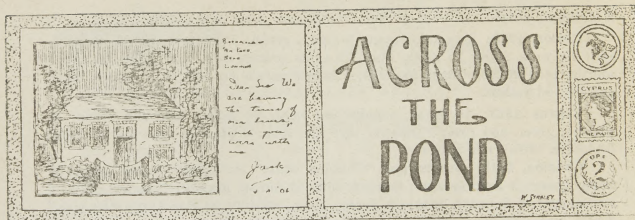 Dear Sue We
are having
the time of
our lives,
wish you
were with
us
Jack
ACROSS
THE
POND
W. STANLEY
CYPRUS
2